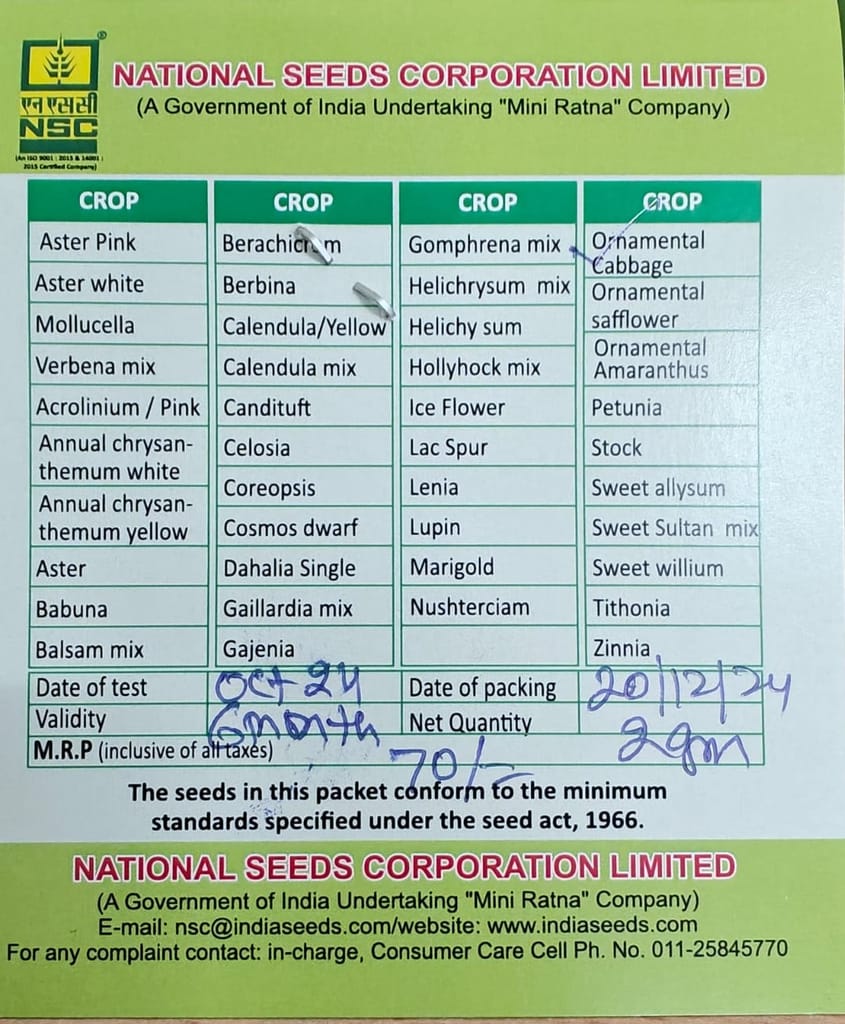 ®
एन एस सी
NSC
(An ISO 9001 : 2015 & 14001 :
2015 Certified Company)
NATIONAL SEEDS CORPORATION LIMITED
(A Government of India Undertaking "Mini Ratna" Company)
CROP CROP CROP CROP
Aster Pink
Aster white
Mollucella
Verbena mix
Acrolinium / Pink
Annual chrysan-
themum white
Annual chrysan-
themum yellow
Aster
Babuna
Balsam mix
Berbina
Calendula/Yellow
Calendula mix
Candituft
Celosia
Coreopsis
Cosmos dwarf
Dahalia Single
Gaillardia mix
Gajenia
Gomphrena mix
Helichrysum mix
Helichy sum
Hollyhock mix
Ice Flower
Lac Spur
Lenia
Lupin
Marigold
Nushterciam
Ornamental
Cabbage
Ornamental
safflower
Ornamental
Amaranthus
Petunia
Stock
Sweet allysum
Sweet Sultan mix
Sweet willium
Tithonia
Zinnia
Date of test Oct 24 Date of packing 20/12/24
Validity 6 month Net Quantity 2 gm
M.R.P (inclusive of all taxes) 70/-
The seeds in this packet conform to the minimum
standards specified under the seed act, 1966.
NATIONAL SEEDS CORPORATION LIMITED
(A Government of India Undertaking "Mini Ratna" Company)
E-mail: nsc@indiaseeds.com/website: www.indiaseeds.com
For any complaint contact: in-charge, Consumer Care Cell Ph. No. 011-25845770